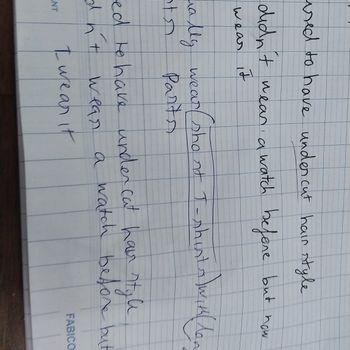 used to have undercut hair style
didn't wear a watch before but now
wear it
wear (short T-shirts) with
Pants
to have undercut hair style,
wear a watch before but
I wear it
FABICO